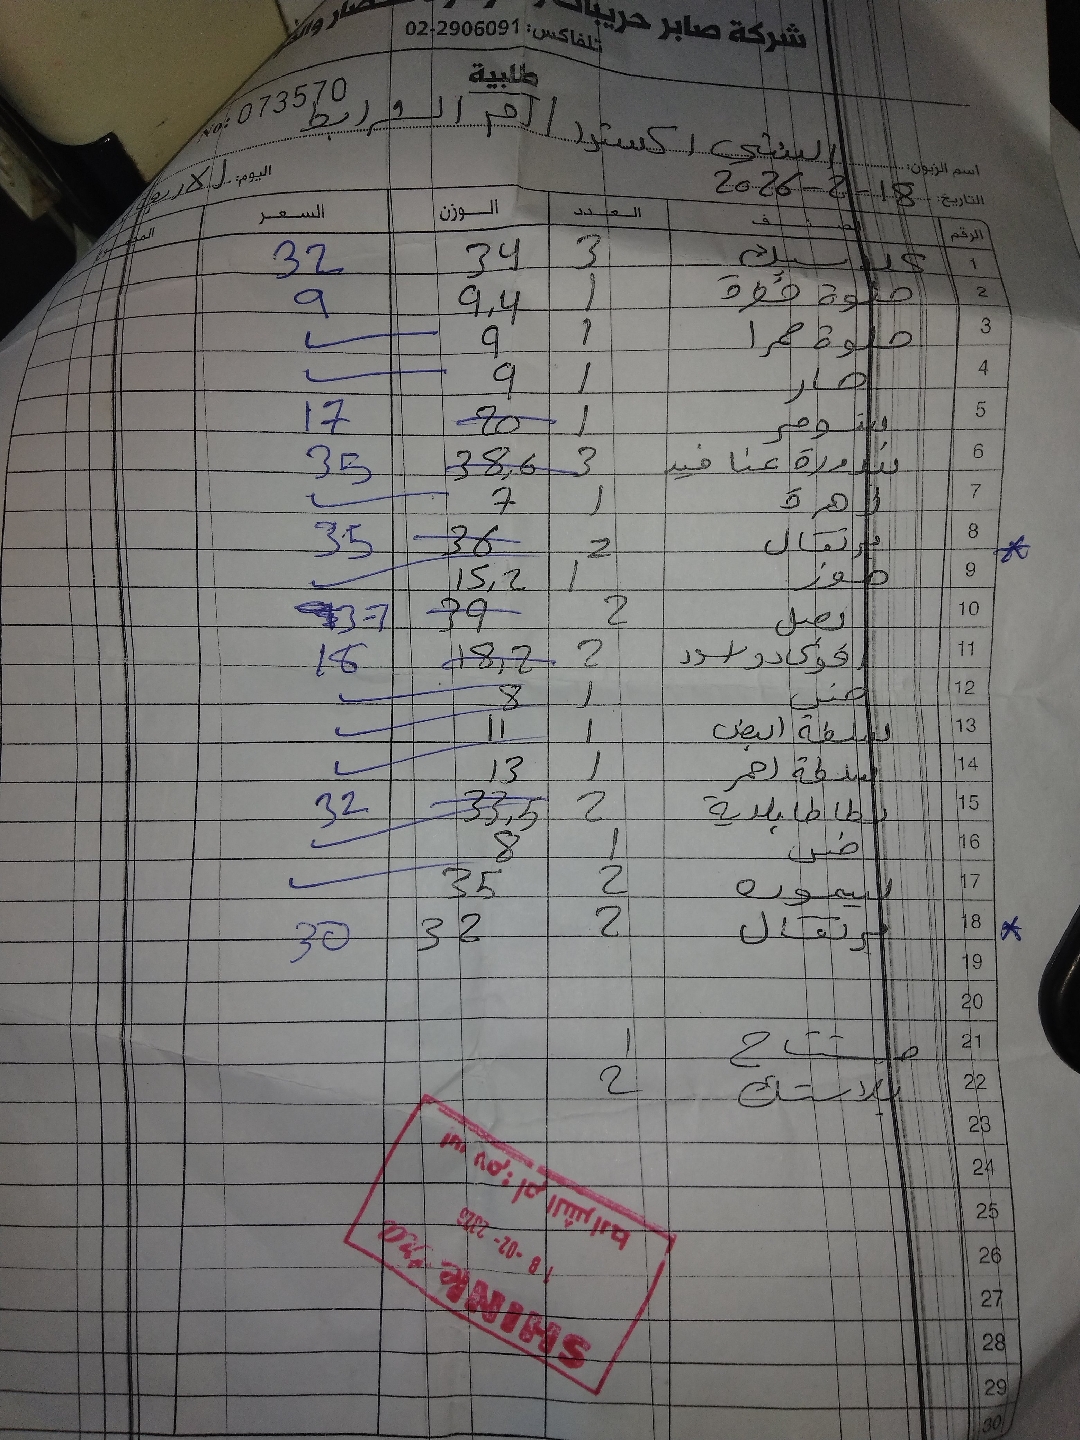 شركة صابر حريبات
تلفاكس: 02-2906091
طلبية
No: 073570
اسم الزبون: اكسترا ام الشرايط
التاريخ: 18-2-2026 اليوم: الاربعاء
الرقم العدد الوزن السعر
1 3 34 32
2 حلوة 1 9,4 9
3 حلوة حمرا 1 9
4 حار 1 9
5 1 20 17
6 بندورة عناقيد 3 38,6 35
7 زهرة 1 7
8 برتقال 2 36 35
9 موز 1 15,2
10 بصل 2 39 37
11 افوكادو اسود 2 18,2 18
12 1 8
13 ابيض 1 11
14 احمر 1 13
15 بطاطا بلدية 2 33,5 32
16 خس 1 8
17 ليمون 2 35
18 برتقال 2 32 30
19
20
21 مشتاح 1
22 بلاستك 2
23
24
25
26
27
28
29
30
SHINE
18-02-2026
ام الشرايط